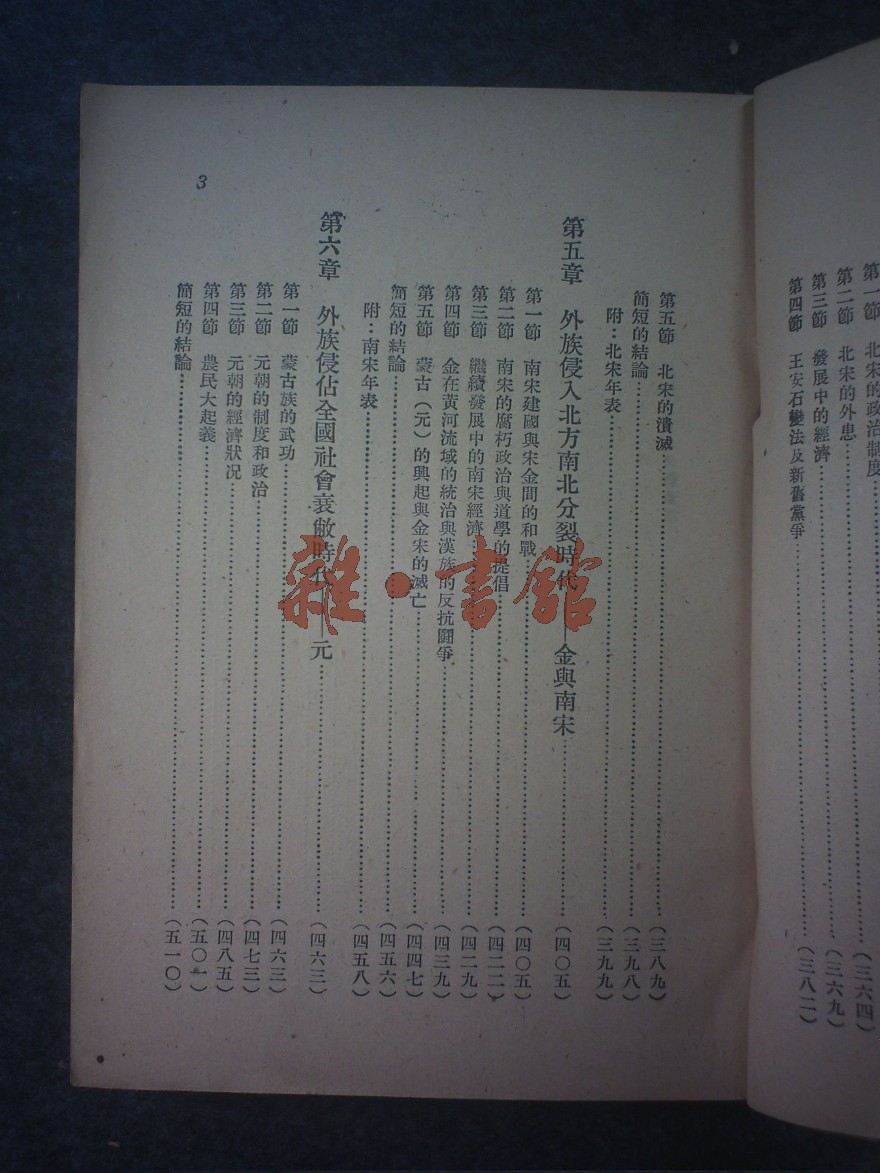 第一節 北宋的政治制度
第二節 北宋的外患…(三六四)
第三節 發展中的經濟…(三六九)
第四節 王安石變法及新舊黨爭…(三八二)
3
第五節 北宋的潰滅…(三八九)
簡短的結論…(三九八)
附：北宋年表…(三九九)
第五章 外族侵入北方南北分裂時代——金與南宋…(四〇五)
第一節 南宋建國與宋金間的和戰…(四〇五)
第二節 南宋的腐朽政治與道學的提倡…(四二二)
第三節 繼續發展中的南宋經濟…(四二九)
第四節 金在黃河流域的統治與漢族的反抗鬪爭…(四三九)
第五節 蒙古(元)的興起與金宋的滅亡…(四四七)
簡短的結論…(四五六)
附：南宋年表…(四五八)
第六章 外族侵佔全國社會衰敝時代——元…(四六三)
第一節 蒙古族的武功…(四六三)
第二節 元朝的制度和政治…(四七三)
第三節 元朝的經濟狀況…(四八五)
第四節 農民大起義…(五〇一)
簡短的結論…(五一〇)
雜·書館